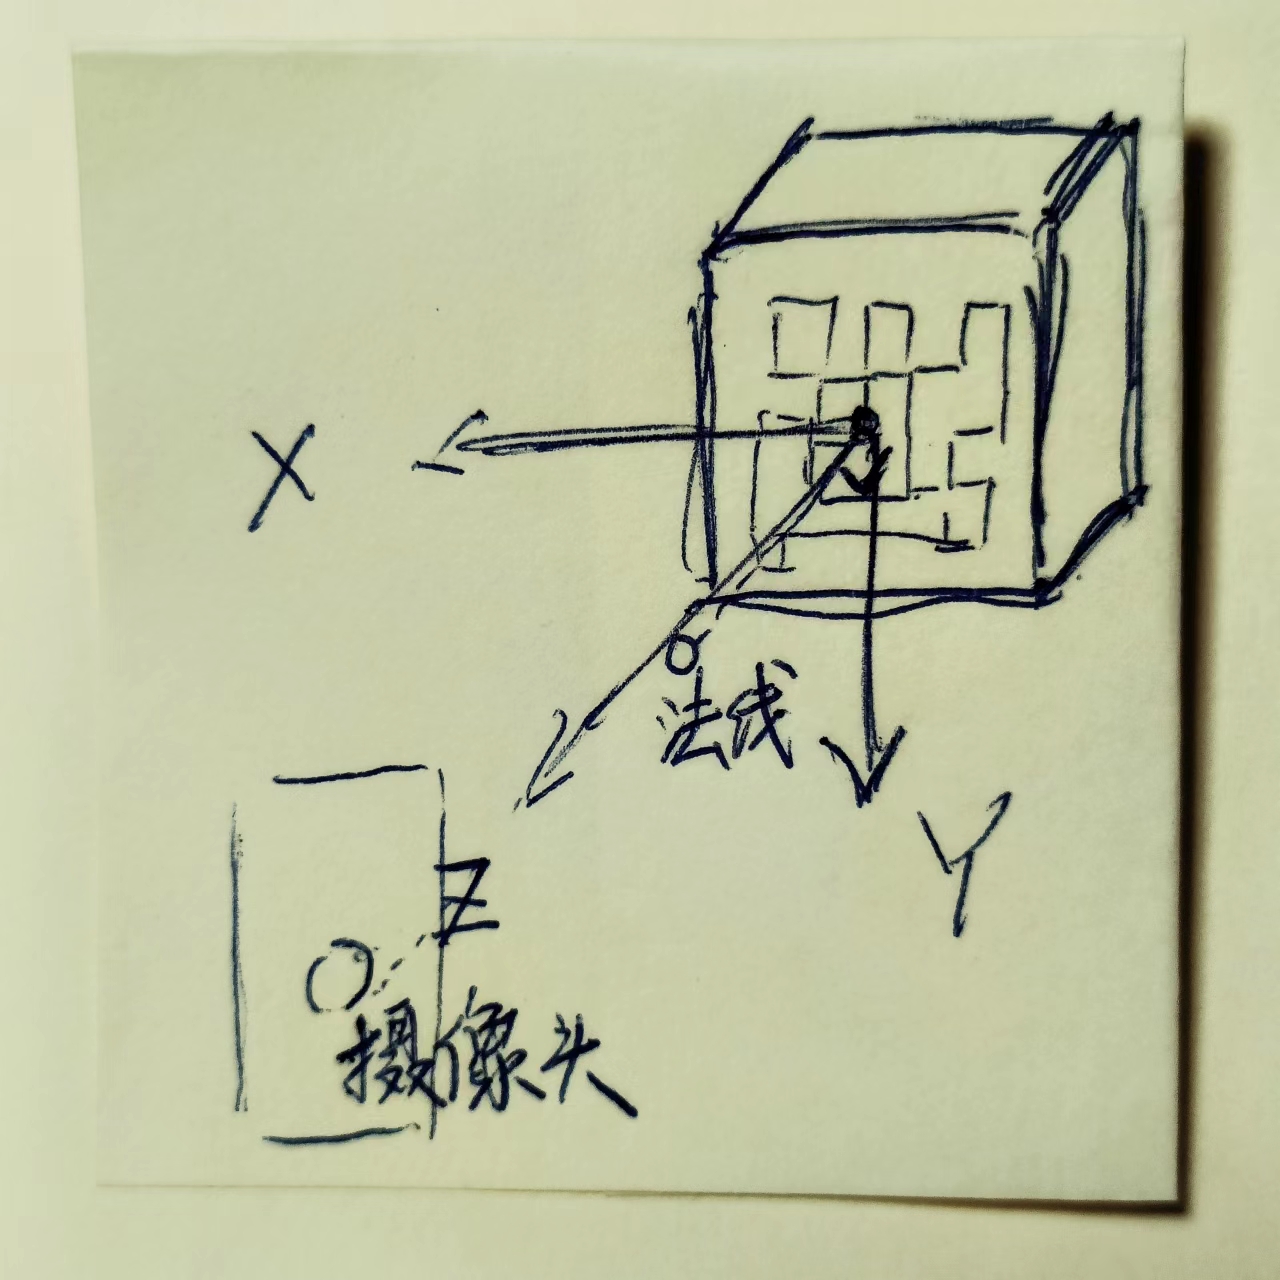 X
法线
Y
Z
摄像头